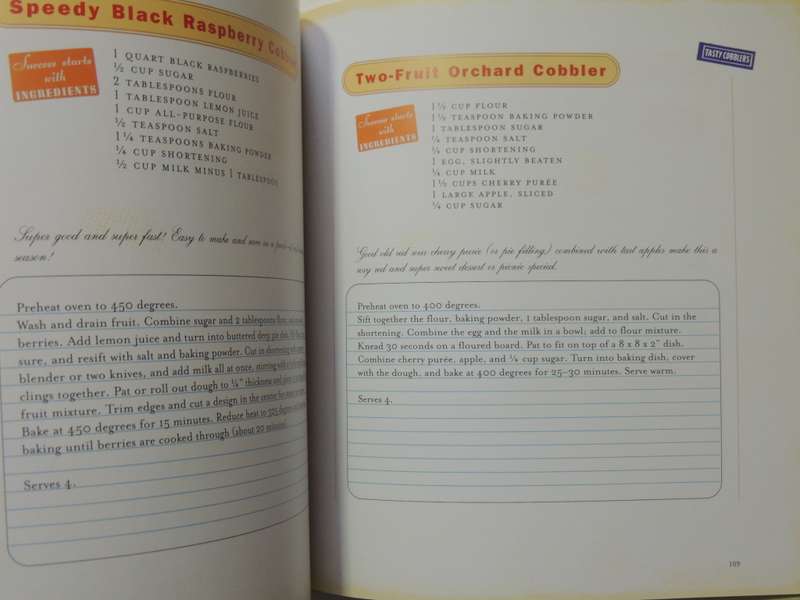 Speedy Black Raspberry Cobbler
Success starts
with
INGREDIENTS
1 QUART BLACK RASPBERRIES
½ CUP SUGAR
2 TABLESPOONS FLOUR
1 TABLESPOON LEMON JUICE
1 CUP ALL-PURPOSE FLOUR
½ TEASPOON SALT
1¼ TEASPOONS BAKING POWDER
¼ CUP SHORTENING
½ CUP MILK MINUS 1 TABLESPOON
Super good and super fast! Easy to make and
season!
Preheat oven to 450 degrees.
Wash and drain fruit. Combine sugar and 2 tablespoons flour,
berries. Add lemon juice and turn into buttered deep pie dish.
sure, and resift with salt and baking powder. Cut in shortening with
blender or two knives, and add milk all at once, stirring with
clings together. Pat or roll out dough to ¼" thickness and
fruit mixture. Trim edges and cut a design in the center
Bake at 450 degrees for 15 minutes. Reduce heat to 325 degrees
baking until berries are cooked through (about 20 minutes).
Serves 4.
TASTY COBBLERS
Two-Fruit Orchard Cobbler
Success starts
with
INGREDIENTS
1½ CUP FLOUR
1½ TEASPOON BAKING POWDER
1 TABLESPOON SUGAR
TEASPOON SALT
CUP SHORTENING
1 EGG, SLIGHTLY BEATEN
CUP MILK
1½ CUPS CHERRY PURÉE
1 LARGE APPLE, SLICED
CUP SUGAR
Good old red sour cherry purée (or pie filling) combined with tart apples make this a
very red and super sweet dessert or picnic special.
Preheat oven to 400 degrees.
Sift together the flour, baking powder, 1 tablespoon sugar, and salt. Cut in the
shortening. Combine the egg and the milk in a bowl; add to flour mixture.
Knead 30 seconds on a floured board. Pat to fit on top of a 8 x 8 x 2" dish.
Combine cherry purée, apple, and cup sugar. Turn into baking dish, cover
with the dough, and bake at 400 degrees for 25–30 minutes. Serve warm.
Serves 4.
109